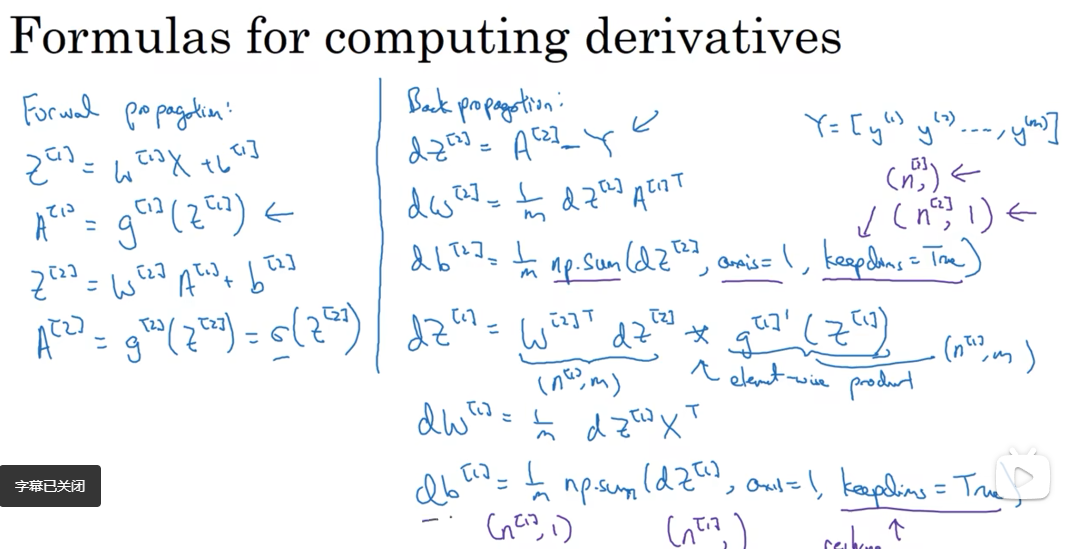 Formulas for computing derivatives
Forward propagation:
Z^[1] = W^[1] X + b^[1]
A^[1] = g^[1](Z^[1]) ←
Z^[2] = W^[2] A^[1] + b^[2]
A^[2] = g^[2](Z^[2]) = σ(Z^[2])
Back propagation:
dZ^[2] = A^[2] - Y ↙
dW^[2] = 1/m dZ^[2] A^[1]T
db^[2] = 1/m np.sum(dZ^[2], axis=1, keepdims=True)
dZ^[1] = W^[2]T dZ^[2] * g^[1]'(Z^[1])
(n^[1], m) ↖ element-wise product (n^[1], m)
dW^[1] = 1/m dZ^[1] X^T
db^[1] = 1/m np.sum(dZ^[1], axis=1, keepdims=True)
(n^[1], 1) (n^[1],) ↑
Y = [y^(1) y^(2) ...., y^(m)]
(n^[2],) ←
↙ (n^[2], 1) ←
字幕已关闭